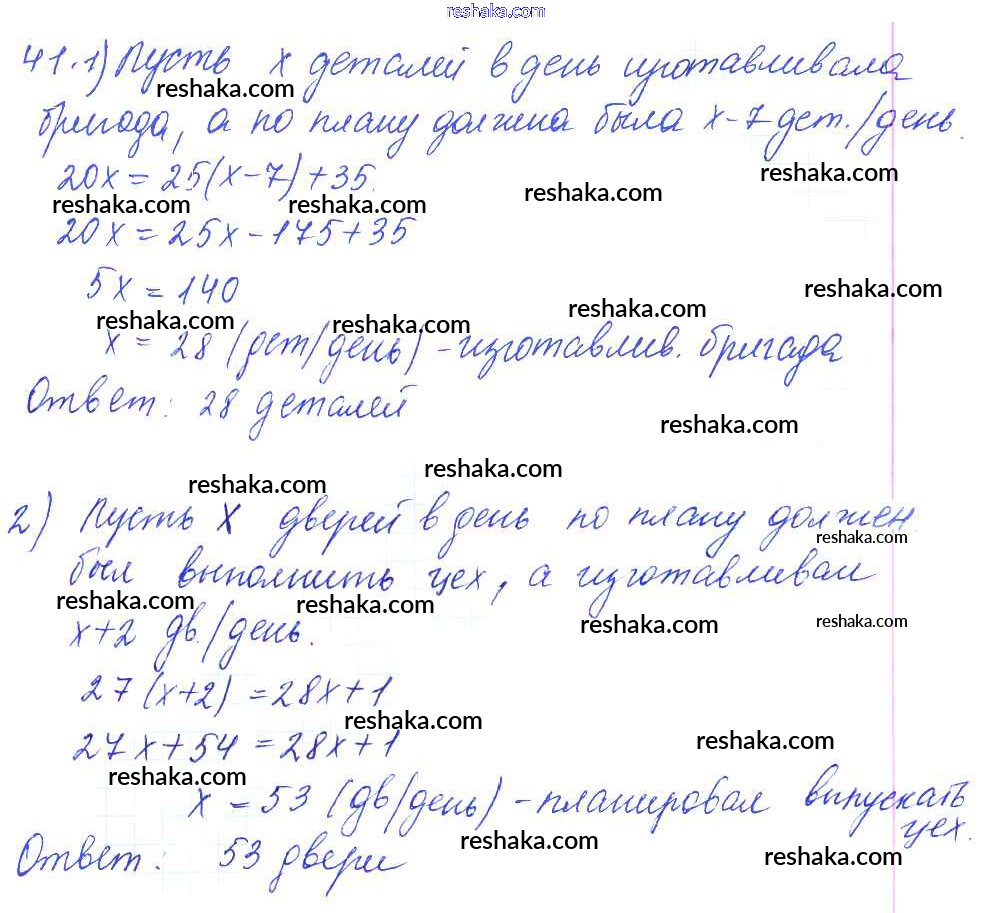 reshaka.com
41.1) Пусть x деталей в день изготавливала
reshaka.com
бригада, а по плану должна была x-7 дет./день.
reshaka.com
20x = 25(x-7)+35.
reshaka.com
reshaka.com reshaka.com
20x = 25x-175+35
5x = 140
reshaka.com
reshaka.com
reshaka.com reshaka.com
x = 28 (дет/день) - изготавлив. бригада
Ответ: 28 деталей
reshaka.com
reshaka.com
reshaka.com
2) Пусть x дверей в день по плану должен
reshaka.com
был выполнить цех, а изготавливал
reshaka.com reshaka.com
reshaka.com reshaka.com
x+2 дв./день.
27(x+2) = 28x+1
reshaka.com
27x+54 = 28x+1
reshaka.com
reshaka.com
x = 53 (дв/день) - планировал выпускать
цех.
reshaka.com
Ответ: 53 двери
reshaka.com